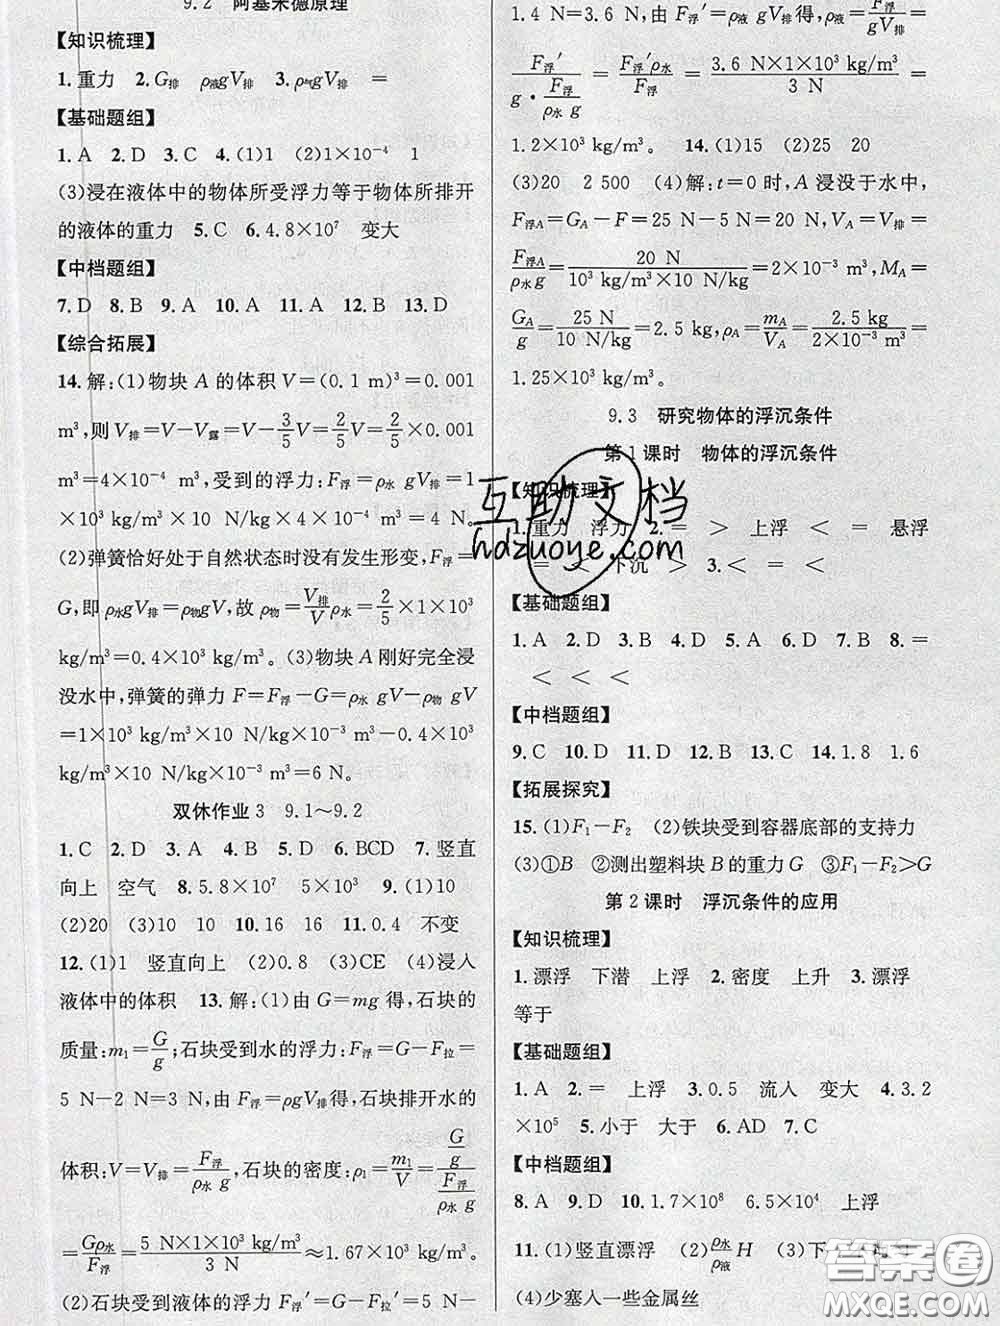 9.2 阿基米德原理
【知识梳理】
1.重力 2.G排 ρ液gV排 3.ρ气gV排 =
【基础题组】
1.A 2.D 3.C 4.(1)1 (2)1×10⁻⁴ 1
(3)浸在液体中的物体所受浮力等于物体所排开
的液体的重力 5.C 6.4.8×10⁷ 变大
【中档题组】
7.D 8.B 9.A 10.A 11.A 12.B 13.D
【综合拓展】
14.解:(1)物块 A 的体积 V=(0.1 m)³=0.001
m³,则 V排=V-V露=V-3/5V=2/5V=2/5×0.001
m³=4×10⁻⁴ m³,受到的浮力:F浮=ρ水 gV排=1
×10³ kg/m³×10 N/kg×4×10⁻⁴ m³=4 N。
(2)弹簧恰好处于自然状态时没有发生形变,F浮=
G,即 ρ水gV排=ρ物gV,故 ρ物=V排/V ρ水=2/5×1×10³
kg/m³=0.4×10³ kg/m³。(3)物块 A 刚好完全浸
没水中,弹簧的弹力 F=F浮-G=ρ水 gV-ρ物 gV
=1×10³ kg/m³×10 N/kg×10⁻³ m³-0.4×10³
kg/m³×10 N/kg×10⁻³ m³=6 N。
双休作业3 9.1~9.2
1.C 2.D 3.A 4.B 5.D 6.BCD 7.竖直
向上 空气 8.5.8×10⁷ 5×10³ 9.(1)10
(2)20 (3)10 10 10.16 16 11.0.4 不变
12.(1)1 竖直向上 (2)0.8 (3)CE (4)浸入
液体中的体积 13.解:(1)由 G=mg 得,石块的
质量:m₁=G/g;石块受到水的浮力:F浮=G-F拉=
5 N-2 N=3 N,由 F浮=ρgV排得,石块排开水的
体积:V=V排=F浮/(ρ水 g);石块的密度:ρ₁=m₁/V=(G/g)/(F浮/(ρ水 g))
=Gρ水/F浮=(5 N×1×10³ kg/m³)/(3 N)≈1.67×10³ kg/m³。
(2)石块受到液体的浮力 F浮′=G-F拉′=5 N-
1.4 N=3.6 N,由 F浮′=ρ液 gV排得,ρ液=F浮′/(gV排)=
F浮′/(g·F浮/(ρ水 g))=F浮′ρ水/F浮=(3.6 N×1×10³ kg/m³)/(3 N)=
1.2×10³ kg/m³。 14.(1)15 (2)25 20
(3)20 2 500 (4)解:t=0 时,A 浸没于水中,
F浮A=GA-F=25 N-5 N=20 N,VA=V排=
F浮A/(ρ水g)=20 N/(10³ kg/m³×10 N/kg)=2×10⁻³ m³,MA=
GA/g=25 N/(10 N/kg)=2.5 kg,ρA=mA/VA=2.5 kg/(2×10⁻³ m³)=
1.25×10³ kg/m³。
9.3 研究物体的浮沉条件
第1课时 物体的浮沉条件
【知识梳理】
1.重力 浮力 2.= > 上浮 < = 悬浮
= < 下沉 > 3.< = <
【基础题组】
1.A 2.D 3.B 4.D 5.A 6.D 7.B 8.=
= < < <
【中档题组】
9.C 10.D 11.D 12.B 13.C 14.1.8 1.6
【拓展探究】
15.(1)F₁-F₂ (2)铁块受到容器底部的支持力
(3)①B ②测出塑料块 B 的重力 G ③F₁-F₂>G
第2课时 浮沉条件的应用
【知识梳理】
1.漂浮 下潜 上浮 2.密度 上升 3.漂浮
等于
【基础题组】
1.A 2.= 上浮 3.0.5 流入 变大 4.3.2
×10⁵ 5.小于 大于 6.AD 7.C
【中档题组】
8.A 9.D 10.1.7×10⁸ 6.5×10⁴ 上浮
11.(1)竖直漂浮 (2)ρ水/ρ液 H (3)下
(4)少塞入一些金属丝
互助文档
hdzuoye.com
答案圈
MXQE.COM